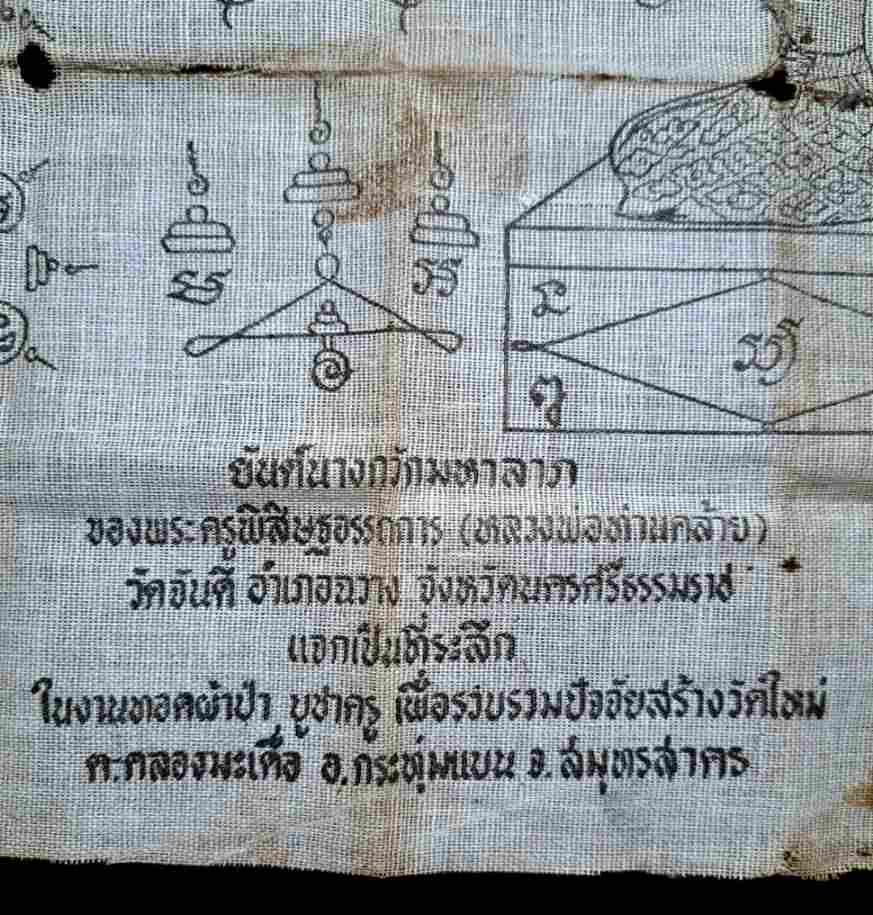 ยันต์นางกวักมหาลาภ
ของพระครูพิสิษฐอรรถการ (หลวงพ่อท่านคล้าย)
วัดจันดี อำเภอฉวาง จังหวัดนครศรีธรรมราช
แจกเป็นที่ระลึก
ในงานทอดผ้าป่า บูชาครู เพื่อรวบรวมปัจจัยสร้างวัดใหม่
ต.คลองมะเดื่อ อ.กระทุ่มแบน จ.สมุทรสาคร